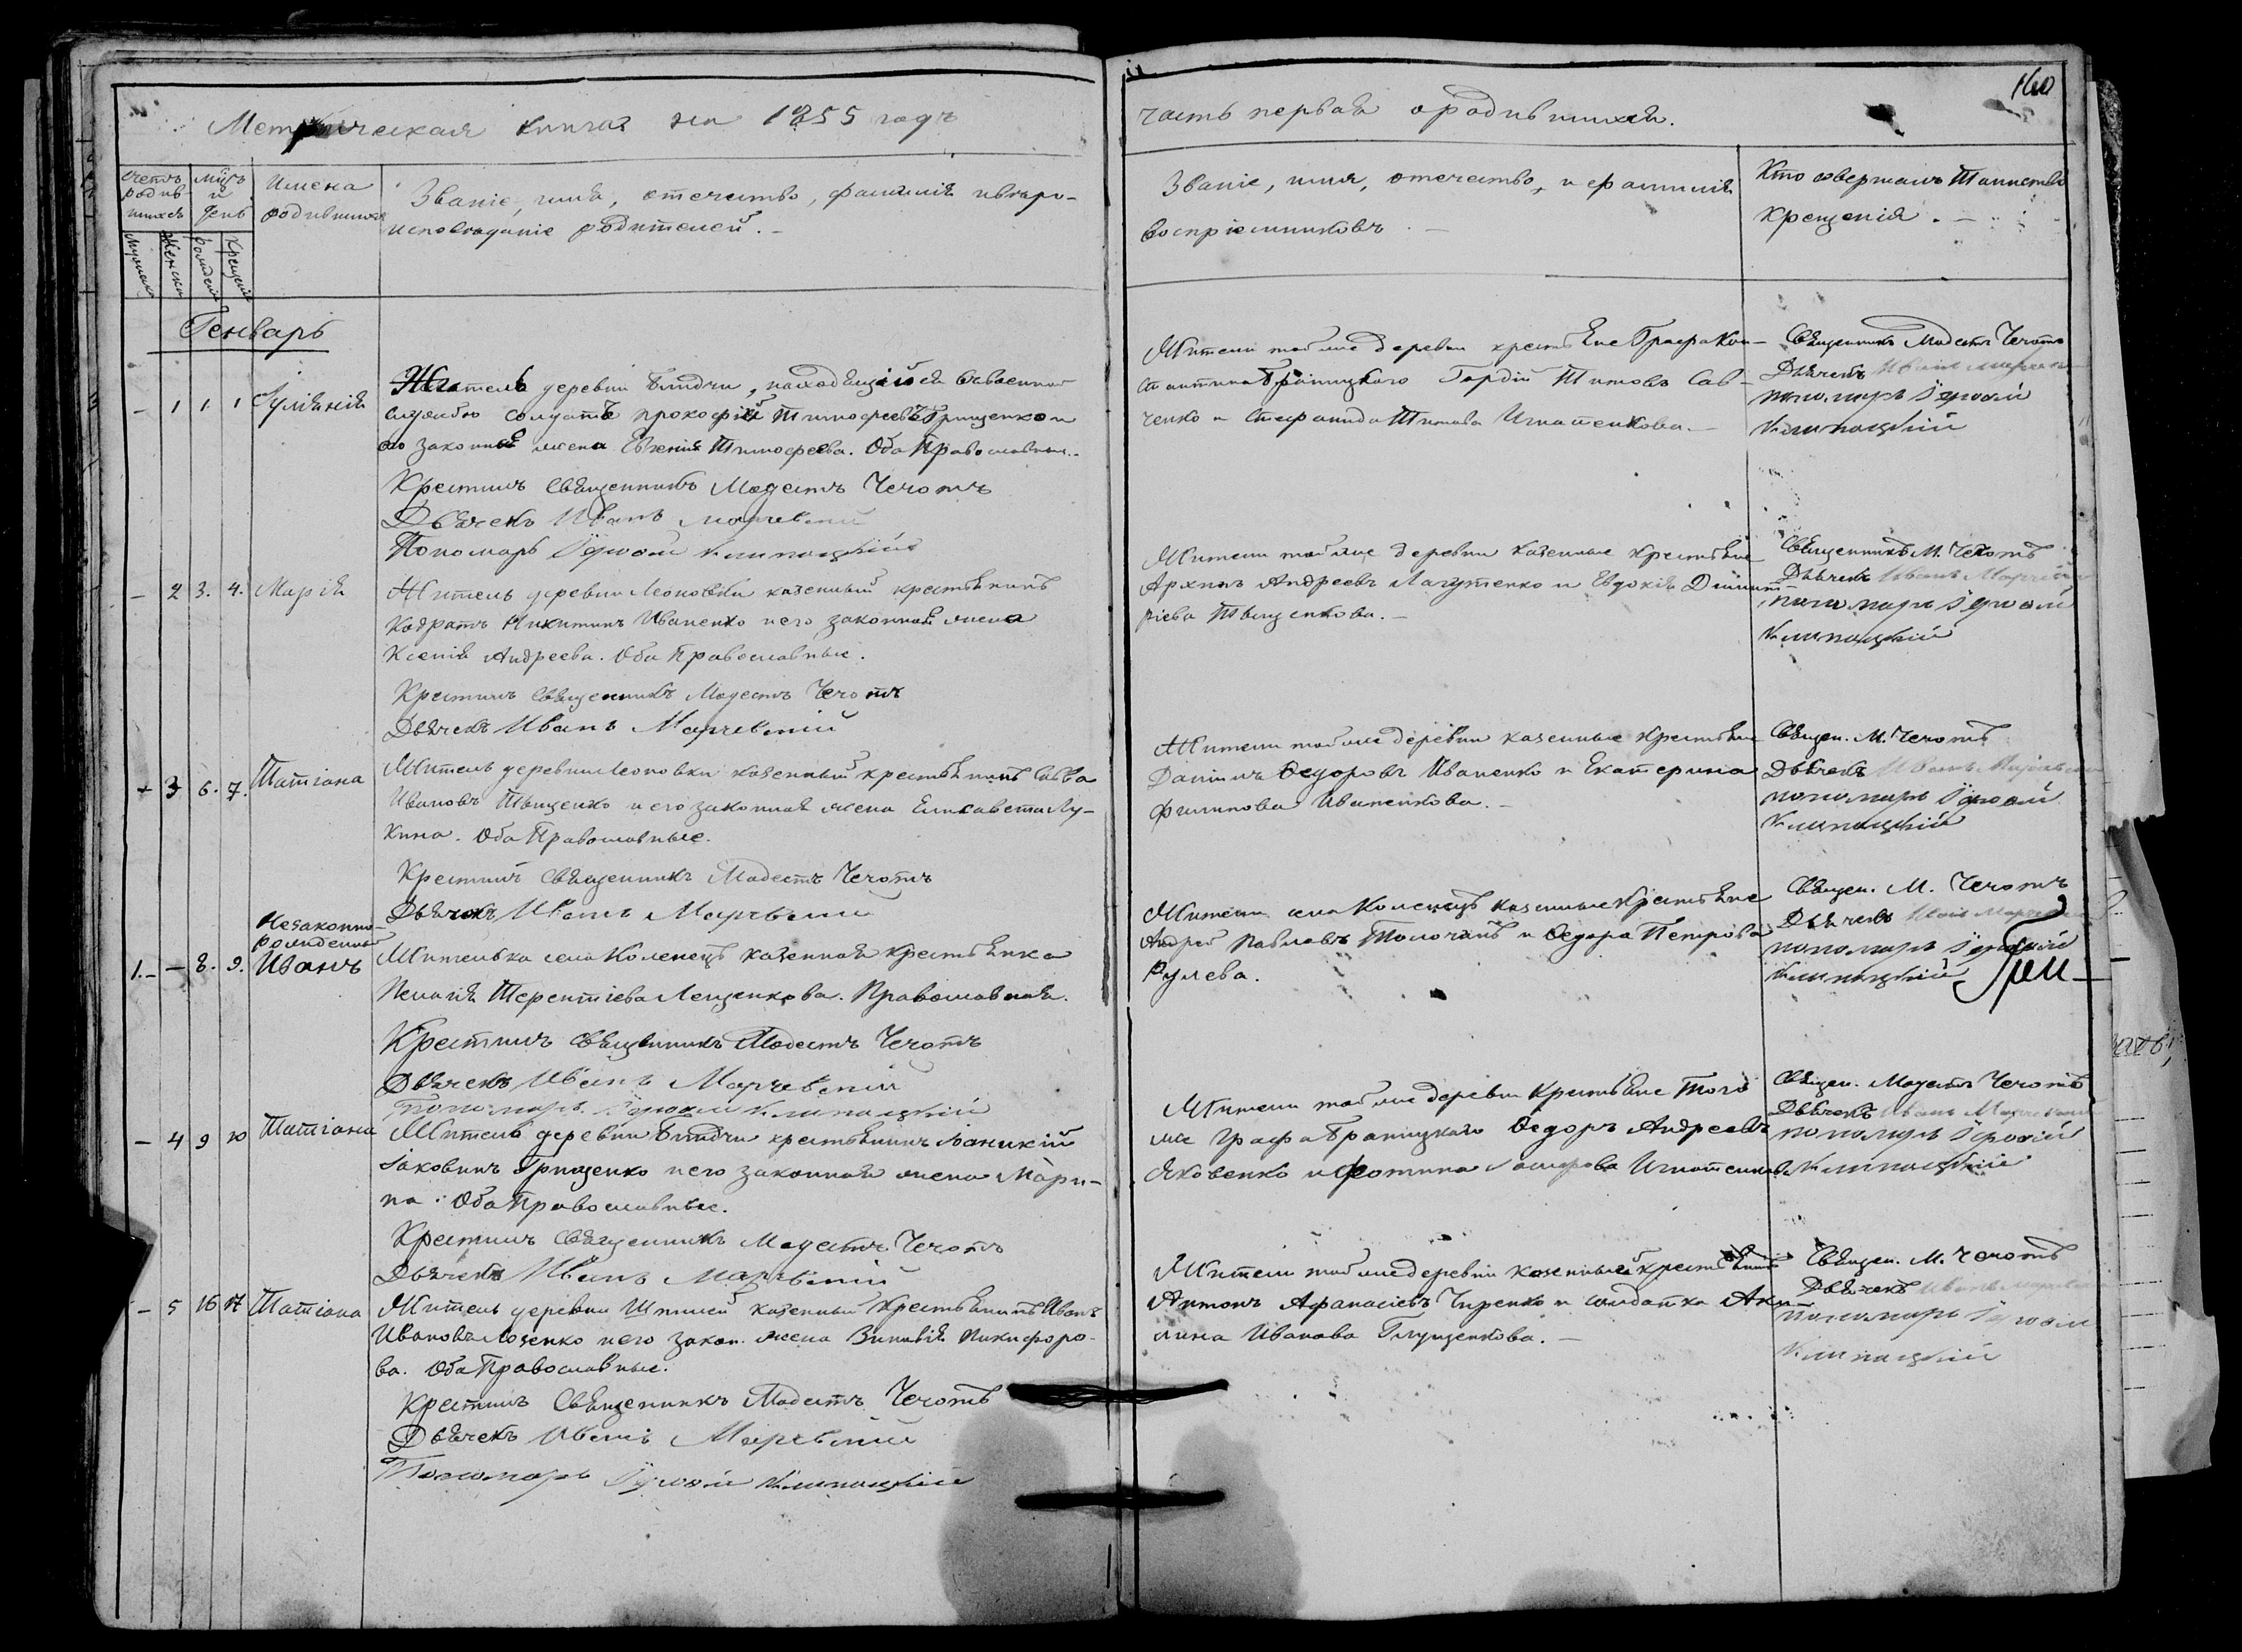 160
Метрическая книга на 1855 годъ
часть первая о родившихся.
Счетъ родив-шихся
Мц҃ъ и день
Имена родившихся
Званіе, имя, отечество, фамилія и вѣро-
исповѣданіе родителей. —
Званіе, имя, отечество, и фамилія
воспріемниковъ. —
Кто совершалъ таинство
крещенія. —
Мужеска
Женска
Рожденія
Крещенія
Генварь
— 1 1 1 Іуліанія
Житель деревни Блидчи, находящійся въ военной
службѣ солдатъ Прокофій Тимофеевъ Грищенко и
его законная жена Евгенія Тимофеева. Оба Православные.
Крестилъ Священникъ Модестъ Чечотъ
Дьячекъ Иванъ Марчевскій
Пономарь Клипацкій
Жители той же деревни крестьяне Графа Кон-
стантина Браницкаго Гордій Титовъ Сав-
ченко и Стефанида Титова Игнатенкова. —
Священникъ Модестъ Чечотъ
Дьячекъ Иванъ
пономарь
Клипацкій
— 2 3. 4. Марія
Житель деревни Леоновки казенный крестьянинъ
Кодратъ Никитинъ Иваненко и его законная жена
Ксенія Андреева. Оба Православные.
Крестилъ Священникъ Модестъ Чечотъ
Дьячекъ Иванъ Марчевскій
Жители той же деревни казенные крестьяне
Архипъ Андреевъ Лагутенко и Евдокія Димит-
ріева Тыщенкова. —
Священникъ М. Чечотъ
Дьячекъ Иванъ Марчевскій
пономарь
Клипацкій
— 3 6. 7. Татіана
Житель деревни Леоновки казенный крестьянинъ Савва
Ивановъ Тыщенко и его законная жена Елисавета Лу-
кина. Оба Православные.
Крестилъ Священникъ Модестъ Чечотъ
Дьячекъ Иванъ Марчевскій
Жители той же деревни казенные крестьяне
Даніилъ Ѳедоровъ Иваненко и Екатерина
Филипова Иваненкова. —
Священ. М. Чечотъ
Дьячекъ Иванъ Марчевскій
пономарь
Клипацкій
Незаконно-
рожденный
1. — — 8. 9. Иванъ
Жителька села Коленецъ казенная крестьянка
Пелагія Терентіева Лещенкова. Православная.
Крестилъ Священникъ Модестъ Чечотъ
Дьячекъ Иванъ Марчевскій
Пономарь Клипацкій
Жители села Коленецъ казенные крестьяне
Андрей Павловъ Толочинъ и Ѳедора Петрова
Рулева.
Священ. М. Чечотъ
Дьячекъ
пономарь
Клипацкій
— 4 9 10 Татіана
Житель деревни Блидчи крестьянинъ Іоаникій
Іаковинъ Грищенко и его законная жена Мари-
на. Оба Православные.
Крестилъ Священникъ Модестъ Чечотъ
Дьячекъ Иванъ Марчевскій
Жители той же деревни крестьяне того
же Графа Браницкаго Ѳедоръ Андреевъ
Яковенко и Фотина Игнатенкова.
Священ. Модестъ Чечотъ
Дьячекъ Иванъ Марчевскій
пономарь
Клипацкій
— 5 16 17 Татіана
Житель деревни казенный крестьянинъ Иванъ
Ивановъ Лозенко и его закон. жена Зиновія Никифоро-
ва. Оба Православные.
Крестилъ Священникъ Модестъ Чечотъ
Дьячекъ Иванъ Марчевскій
Пономарь Клипацкій
Жители той же деревни казенный крестьянинъ
Антонъ Афанасіевъ Чиренко и солдатка Аку-
лина Иванова Глущенкова. —
Священ. М. Чечотъ
Дьячекъ Иванъ
пономарь
Клипацкій